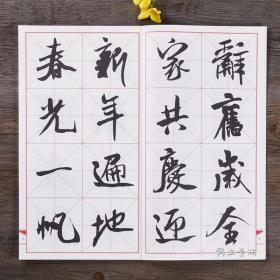 辭舊歲全
家共慶迎
新年遍地
春光一帆